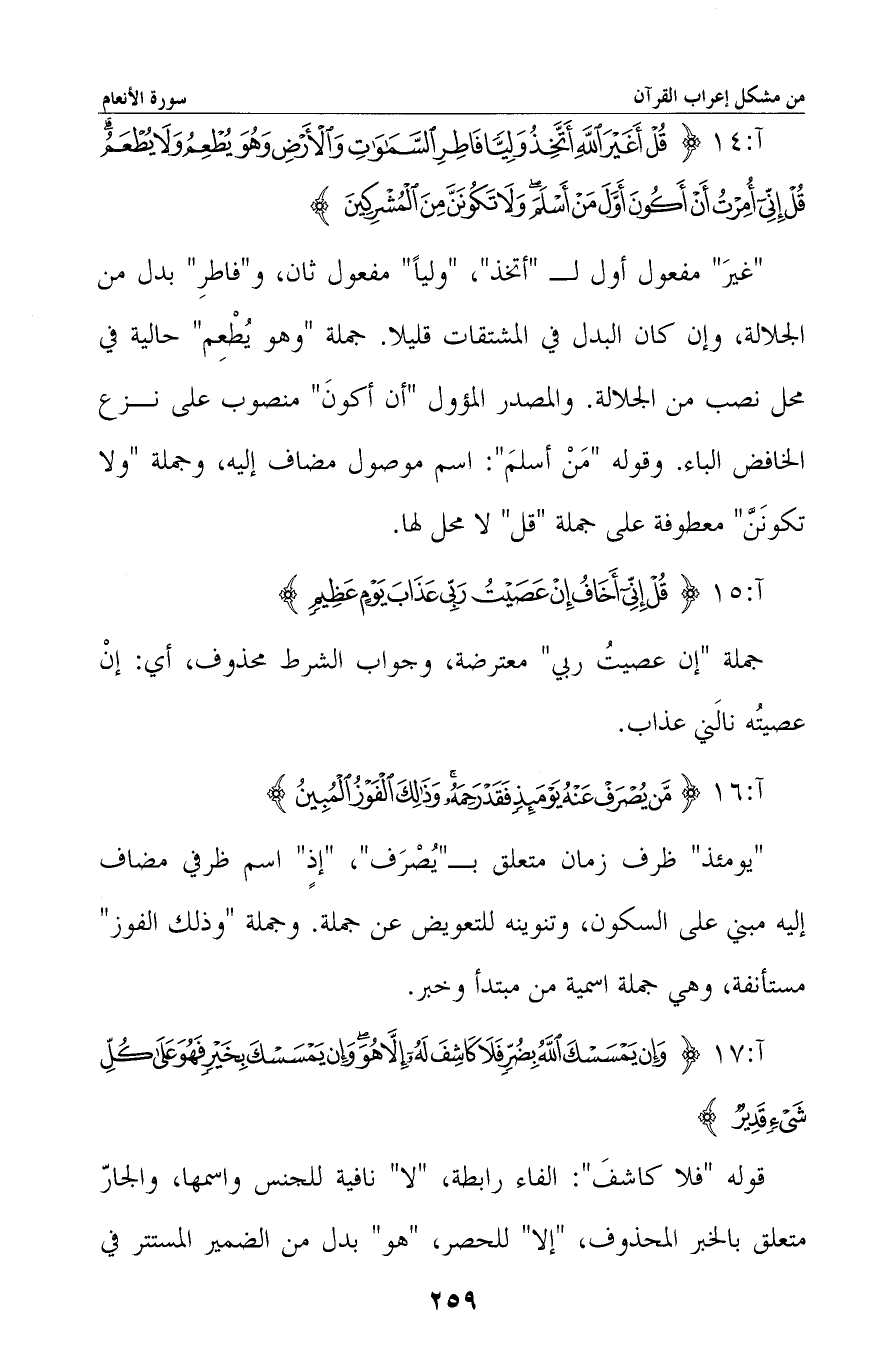 من مشكل إعراب القرآن سورة الأنعام
آ:١٤ ﴿ قُلْ أَغَيْرَ ٱللَّهِ أَتَّخِذُ وَلِيًّا فَاطِرِ ٱلسَّمَٰوَٰتِ وَٱلْأَرْضِ وَهُوَ يُطْعِمُ وَلَا يُطْعَمُ ۗ
قُلْ إِنِّىٓ أُمِرْتُ أَنْ أَكُونَ أَوَّلَ مَنْ أَسْلَمَ ۖ وَلَا تَكُونَنَّ مِنَ ٱلْمُشْرِكِينَ ﴾
"غيرَ" مفعول أول لـ "أتخذ"، "ولياً" مفعول ثان، و"فاطرِ" بدل من
الجلالة، وإن كان البدل في المشتقات قليلا. جملة "وهو يُطْعِم" حالية في
محل نصب من الجلالة. والمصدر المؤول "أن أكونَ" منصوب على نـزع
الخافض الباء. وقوله "مَنْ أسلمَ": اسم موصول مضاف إليه، وجملة "ولا
تكونَنَّ" معطوفة على جملة "قل" لا محل لها.
آ:١٥ ﴿ قُلْ إِنِّىٓ أَخَافُ إِنْ عَصَيْتُ رَبِّى عَذَابَ يَوْمٍ عَظِيمٍ ﴾
جملة "إن عصيتُ ربي" معترضة، وجواب الشرط محذوف، أي: إنْ
عصيتُه نالَني عذاب.
آ:١٦ ﴿ مَّن يُصْرَفْ عَنْهُ يَوْمَئِذٍ فَقَدْ رَحِمَهُۥ ۚ وَذَٰلِكَ ٱلْفَوْزُ ٱلْمُبِينُ ﴾
"يومئذ" ظرف زمان متعلق بـ"يُصْرَف"، "إذٍ" اسم ظرفي مضاف
إليه مبني على السكون، وتنوينه للتعويض عن جملة. وجملة "وذلك الفوز"
مستأنفة، وهي جملة اسمية من مبتدأ وخبر.
آ:١٧ ﴿ وَإِن يَمْسَسْكَ ٱللَّهُ بِضُرٍّ فَلَا كَاشِفَ لَهُۥٓ إِلَّا هُوَ ۖ وَإِن يَمْسَسْكَ بِخَيْرٍ فَهُوَ عَلَىٰ كُلِّ
شَىْءٍ قَدِيرٌ ﴾
قوله "فلا كاشفَ": الفاء رابطة، "لا" نافية للجنس واسمها، والجارّ
متعلق بالخبر المحذوف، "إلا" للحصر، "هو" بدل من الضمير المستتر في
٢٥٩